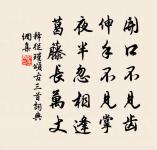 開口不見齒
伸手不見掌
夜半忽相逢
葛藤長萬丈
釋從瑾頌古三首詞典
網集